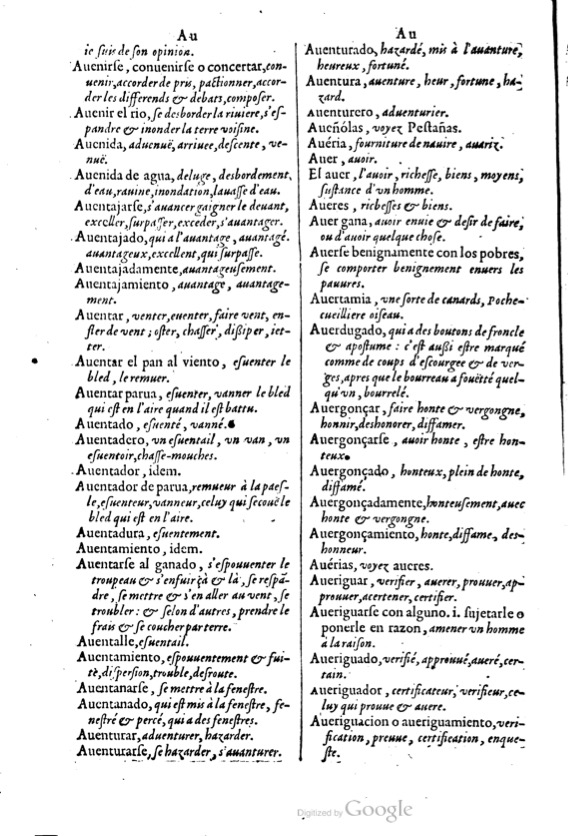 Au
ie suis de son opinion.
Auenirse, conuenirse o concertar, con-
uenir, accorder de pris, pactionner, accor-
der les differends & debats, composer.
Auenir el rio, se desborder la riuiere, s'es-
pandre & inonder la terre voisine.
Auenida, aduenuë, arriuee, descente, ve-
nuë.
Auenida de agua, deluge, desbordement
d'eau, rauine, inondation, lauasse d'eau.
Auentajarse, s'auancer gaigner le deuant,
exceller, surpasser, exceder, s'auantager.
Auentajado, qui a l'auantage, auantagé.
auantageux, excellent, qui surpasse.
Auentajadamente, auantageusement.
Auentajamiento, auantage, auantage-
ment.
Auentar, venter, euenter, faire vent, en-
fler de vent; oster, chasser, dißiper, iet-
ter.
Auentar el pan al viento, esuenter le
bled, le remuer.
Auentar parua, esuenter, vanner le bled
qui est en l'aire quand il est battu.
Auentado, esuenté, vanné.
Auentadero, vn esuentail, vn van, vn
esuentoir, chasse-mouches.
Auentador, idem.
Auentador de parua, remueur à la paes-
le, esuenteur, vanneur, celuy qui secouë le
bled qui est en l'aire.
Auentadura, esuentement.
Auentamiento, idem.
Auentarse al ganado, s'espouuenter le
troupeau & s'enfuir çà & là, se respā-
dre, se mettre & s'en aller au vent, se
troubler: & selon d'autres, prendre le
frais & se coucher par terre.
Auentalle, esuentail.
Auentamiento, espouuentement & fui-
te, dispersion, trouble, desroute.
Auentanarse, se mettre à la fenestre.
Auentanado, qui est mis à la fenestre, fe-
nestré & percé, qui a des fenestres.
Auenturar, aduenturer, hazarder.
Auenturarse, se hazarder, s'auanturer.
Au
Auenturado, hazardé, mis à l'auanture,
heureux, fortuné.
Auentura, auenture, heur, fortune, ha-
zard.
Auenturero, aduenturier.
Aueñolas, voyez Pestañas.
Auéria, fourniture de nauire, auariz.
Auer, auoir.
El auer, l'auoir, richesse, biens, moyens,
sustance d'vn homme.
Aueres, richesses & biens.
Auer gana, auoir enuie & desir de faire,
ou d'auoir quelque chose.
Auerse benignamente con los pobres,
se comporter benignement enuers les
pauures.
Auertamia, vne sorte de canards, Poche-
cueilliere oiseau.
Auerdugado, qui a des boutons de froncle
& apostume: c'est außi estre marqué
comme de coups d'escourgee & de ver-
ges, apres que le bourreau a fouëtté quel-
qu'vn, bourrelé.
Auergonçar, faire honte & vergongne,
honnir, deshonorer, diffamer.
Auergonçarse, auoir honte, estre hon-
teux.
Auergonçado, honteux, plein de honte,
diffamé.
Auergonçadamente, honteusement, auec
honte & vergongne.
Auergonçamiento, honte, diffame, des-
honneur.
Auérias, voyez aueres.
Aueriguar, verifier, auerer, prouuer, ap-
prouuer, acertener, certifier.
Aueriguarse con alguno. i. sujetarle o
ponerle en razon, amener vn homme
à la raison.
Aueriguado, verifié, approuué, aueré, cer-
tain.
Aueriguador, certificateur, verifieur, ce-
luy qui prouue & auere.
Aueriguacion o aueriguamiento, veri-
fication, preuue, certification, enque-
ste.
Digitized by Google